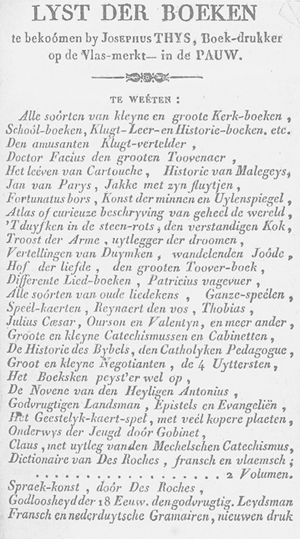 LYST DER BOEKEN
te bekoómen by JOSEPHUS THYS, Boek-drukker
op de Vlas-merkt— in de PAUW.
TE WEÉTEN :
Alle soórten van kleyne en groote Kerk-boeken ,
Schoól-boeken, Klugt-Leer-en Historie-boeken. etc.
Den amusanten Klugt-vertelder ,
Doctor Facius den grooten Toovenaer ,
Het leéven van Cartouche , Historie van Malegeys,
Jan van Parys, Jakke met zyn fluytjen ,
Fortunatus bors , Konst der minnen en Uylenspiegel ,
Atlas of curieuze beschryving van geheel de wereld ,
'T duyfken in de steen-rots , den verstandigen Kok,
Troost der Arme , uytlegger der droomen ,
Vertellingen van Duymken, wandelenden Joóde ,
Hof der liefde , den grooten Toover-boek ,
Differente Lied-boeken , Patricius vagevuer ,
Alle soórten van oude liedekens , Ganze-speélen ,
Speél-kaerten , Reynaert den vos , Thobias ,
Julius Cæsar , Ourson en Valentyn, en meer ander ,
Groote en kleyne Catechismussen en Cabinetten ,
De Historie des Bybels, den Catholyken Pedagogue ,
Groot en kleyne Negotianten , de 4 Uyttersten ,
Het Boeksken peyst'er wel op ,
De Novene van den Heyligen Antonius ,
Godvrugtigen Landsman , Epistels en Evangeliën ,
Het Geestelyk-kaert-spel , met veél kopere plaeten ,
Onderwys der Jeugd doór Gobinet ,
Claus , met uytleg van den Mechelschen Catechismus,
Dictionaire van Des Roches , fransch en vlaemsch ;
. . . . . . . . . . . . . . . . . . . . . 2 Volumen.
Spraek-konst , doór Des Roches ,
Godloosheyd der 18 Eeuw. den godvrugtig. Leydsman
Fransch en nederduytsche Gramairen, nieuwen druk